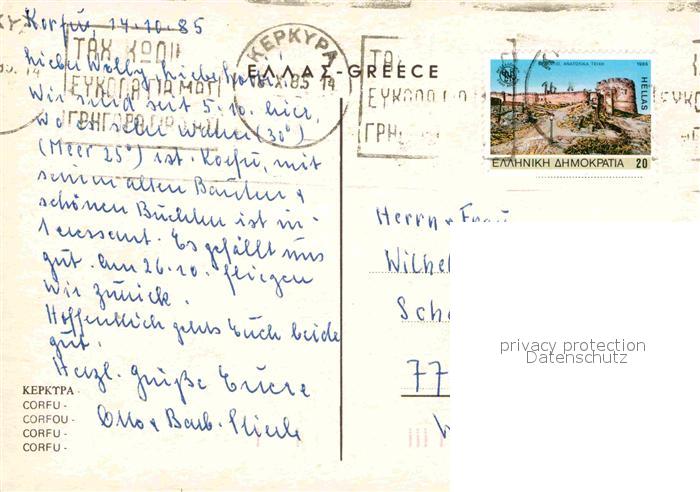 Korfu, 14.10.85
Liebe Wally, Lieber
Wir sind seit 5.10. hier,
wo es sehr warm (30°)
(Meer 25°) ist. Korfu, mit
seinen alten Bauten &
schönen Buchten ist in-
teressant. Es gefällt uns
gut. Am 26.10. fliegen
wir zurück.
Hoffentlich gehts Euch beide
gut.
Herzl. Grüße Eure
Otto & Barb.
ΚΕΡΚΤΡΑ -
CORFU -
CORFOU -
CORFU -
CORFU -
ΤΑΧ. ΚΩΔΙΚ
ΕΥΚΟΛΑ ΓΙΑ ΜΑΣ
ΓΡΗΓΟΡΑ ΓΙΑ ΣΑΣ
ΚΕΡΚΥΡΑ
X.85 14
ΕΛΛΑΣ-GREECE
ΤΑ
ΕΥΚΟΛΑ ΓΙΑ
ΓΡΗ
ΑΝΑΤΟΛΙΚΑ ΤΕΙΧΗ 1985
HELLAS
ΕΛΛΗΝΙΚΗ ΔΗΜΟΚΡΑΤΙΑ 20
Herrn & Frau
Wilhel
Sch
77
privacy protection
Datenschutz